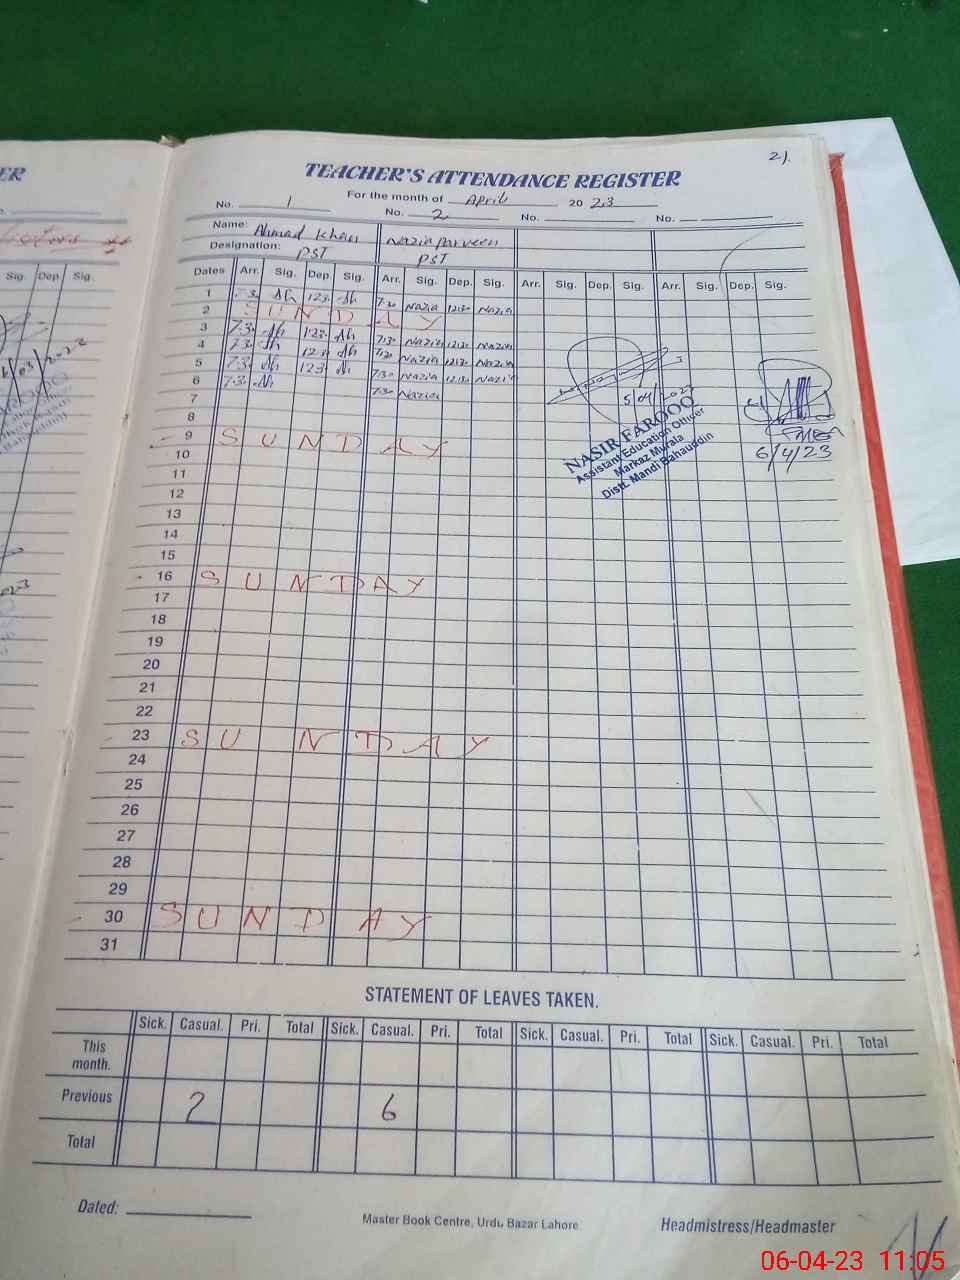 21.
TEACHER'S ATTENDANCE REGISTER
For the month of April 2023
No. 1 No. 2 No. No.
Name: Ahmad Khan Nazia parveen
Designation: PST PST
Dates Arr. Sig. Dep. Sig. Arr. Sig. Dep. Sig. Arr. Sig. Dep. Sig. Arr. Sig. Dep. Sig.
1 7.30 Nazia 12:30 Nazia
2 SUNDAY
3 7:30 Nazia 12:30 Nazia
4 7:30 Nazia 12:30 Nazia
5 7:30 Nazia 12:30 Nazia
6 7:30 Nazia
7
8
9 SUNDAY
10
11
12
13
14
15
16 SUNDAY
17
18
19
20
21
22
23 SUNDAY
24
25
26
27
28
29
30 SUNDAY
31
5/04/2023
NASIR FAROOQ
Assistant Education Officer
Markaz Murala
Distt. Mandi Bahauddin
6/4/23
STATEMENT OF LEAVES TAKEN.
Sick. Casual. Pri. Total Sick. Casual. Pri. Total Sick. Casual. Pri. Total Sick. Casual. Pri. Total
This
month.
Previous 2 6
Total
Dated:
Master Book Centre, Urdu Bazar Lahore
Headmistress/Headmaster
06-04-23 11:05
ER
Sig. Dep. Sig.